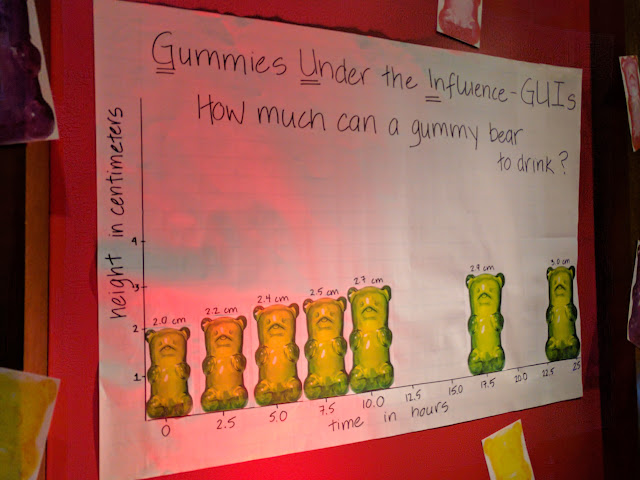 Gummies Under the Influence-GUIs
How much can a gummy bear
to drink?
height in centimeters
4
3
2
1
2.0 cm
2.2 cm
2.4 cm
2.5 cm
2.7 cm
2.9 cm
3.0 cm
0
2.5
5.0
7.5
10.0
12.5
15.0
17.5
20.0
22.5
25
time in hours